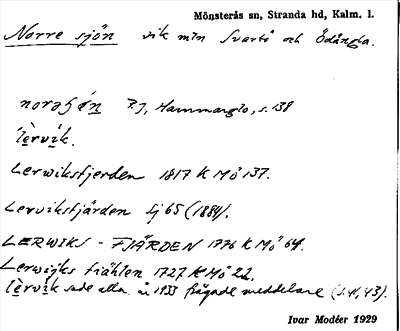 Mönsterås sn, Stranda hd, Kalm. l.
Norre sjön vik m'n Svartö och Ödängla.
P.J, Hammarglo, s. 138
lèrvik.
Lerwiksfjerden 1817 K Mö 137.
Lerviksfjärden Sj 65 (1884).
LERWIKS - FJÄRDEN 1776 K Mö 64.
Lerwijks fiählen 1727 K Mö 22.
lèrvik sade alla år 1933 frågade meddelare (s. 41, 43).
Ivar Modéer 1929